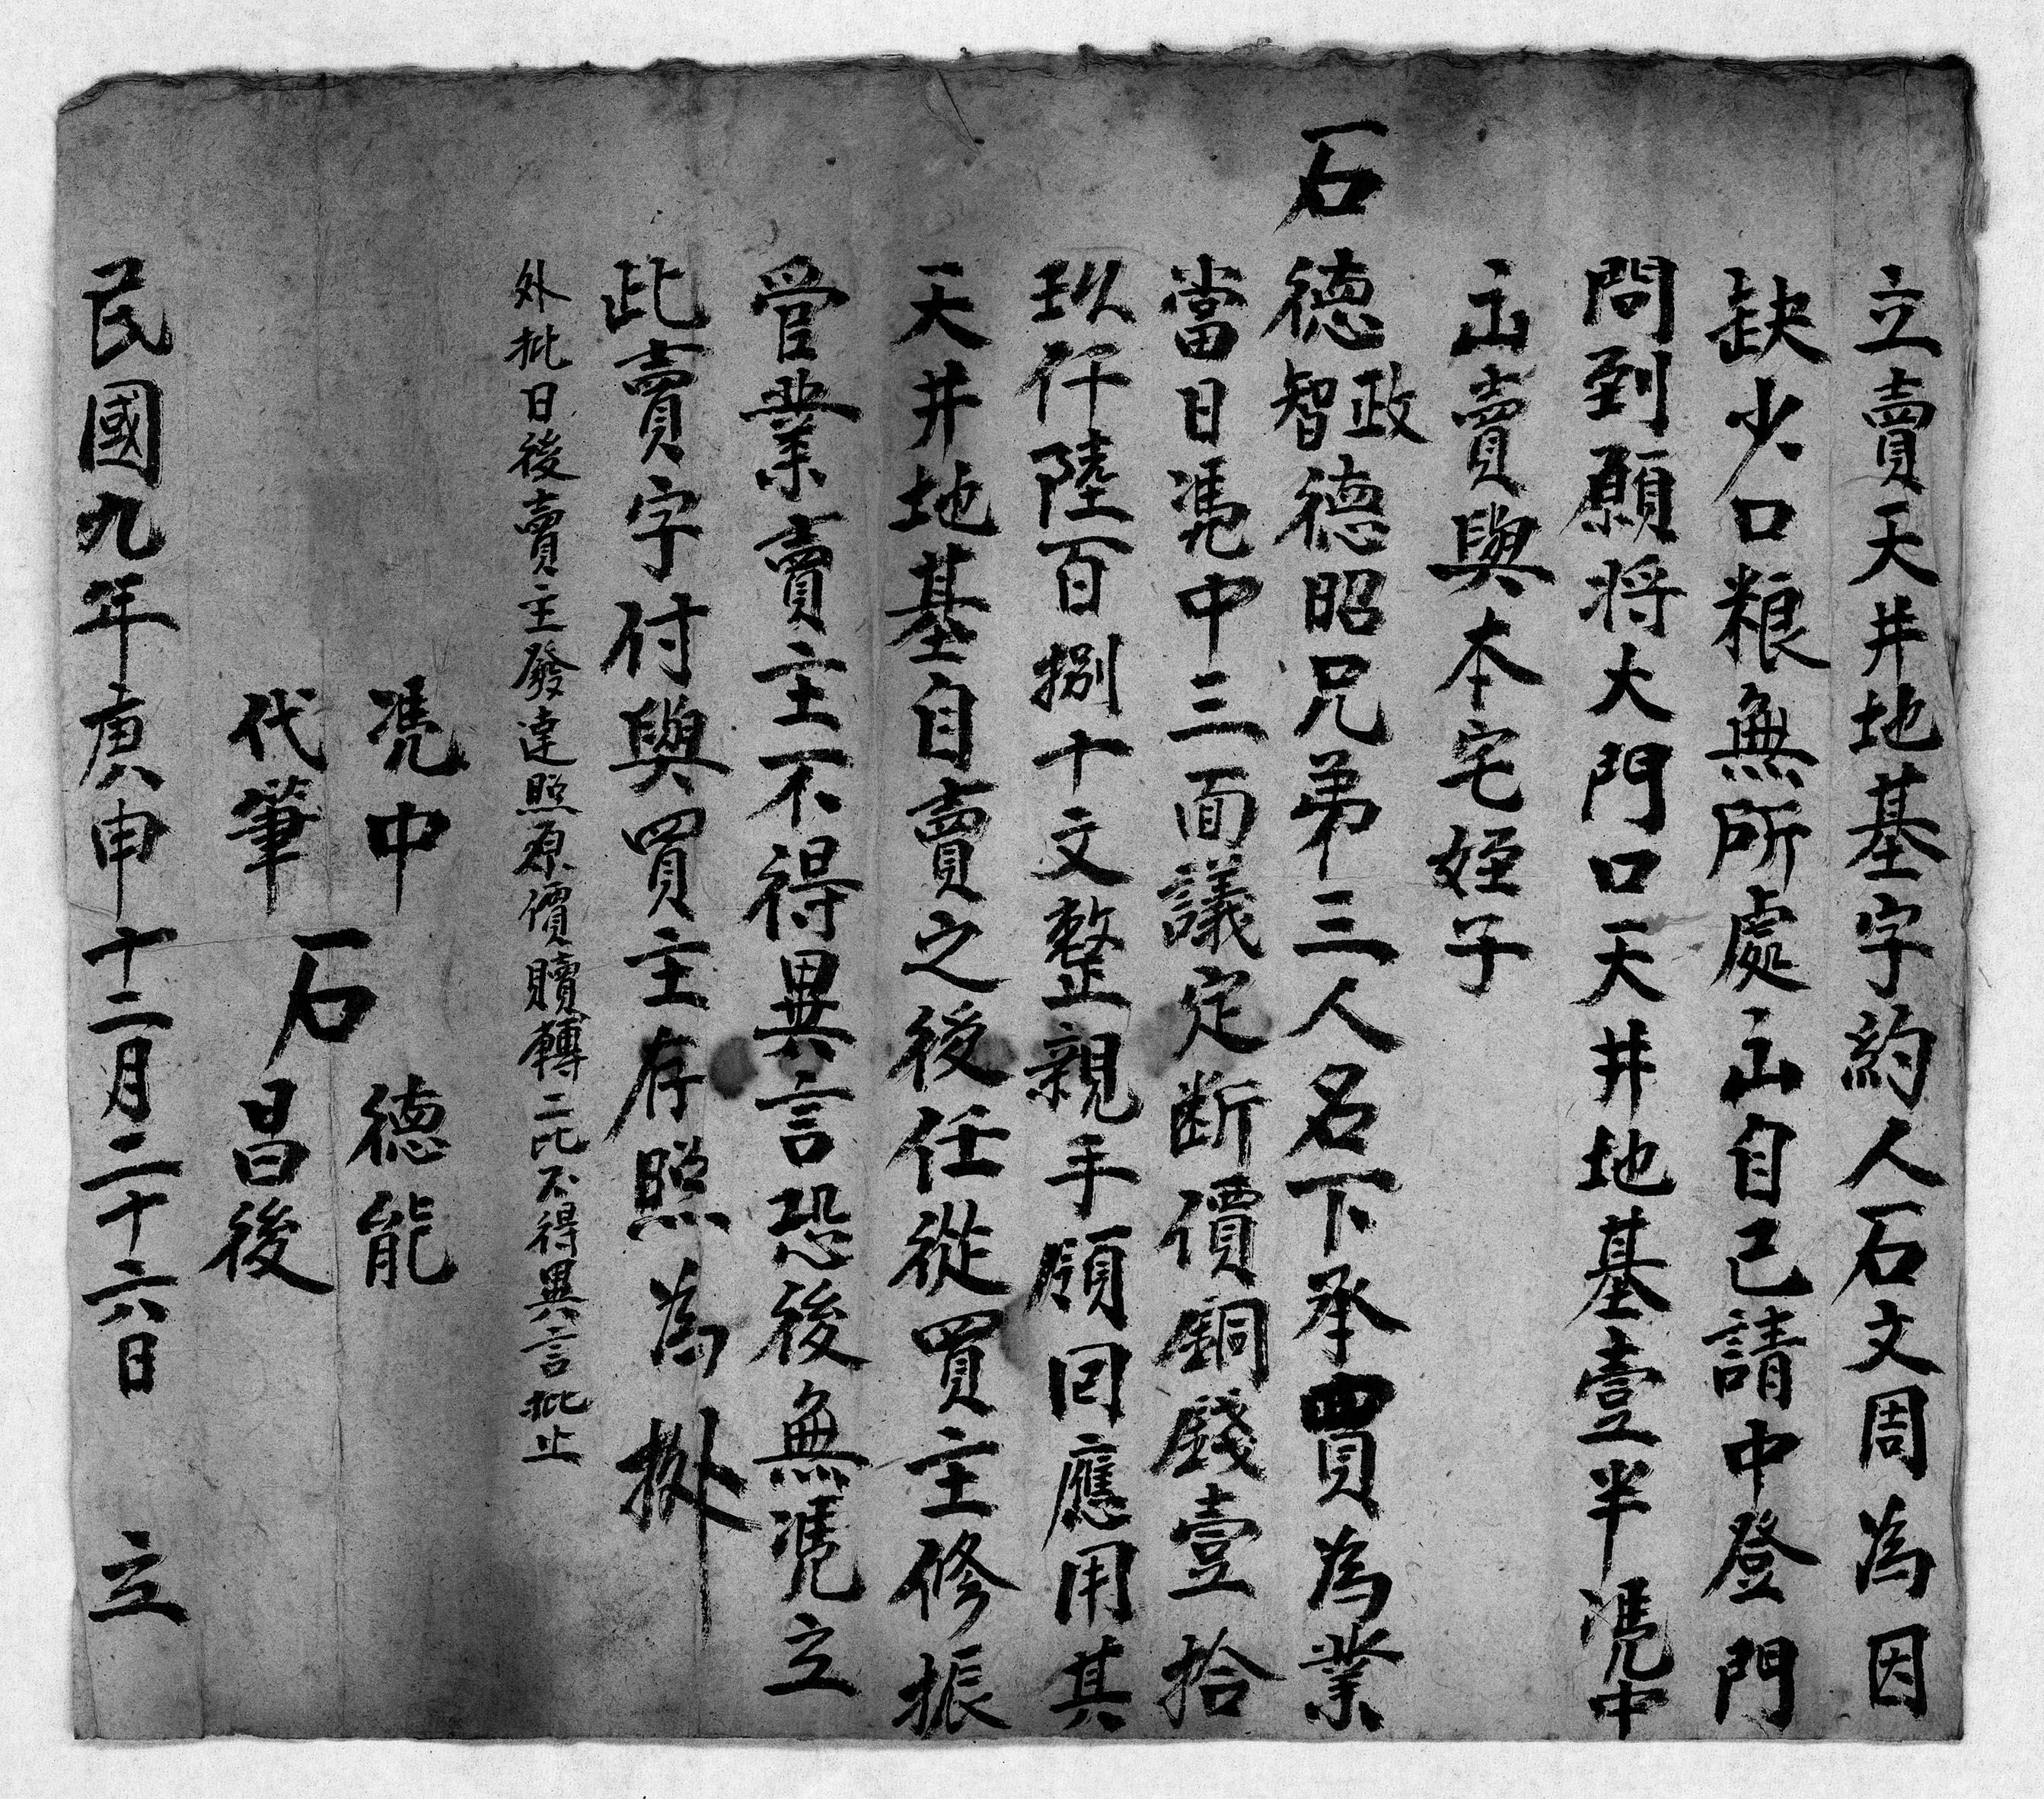 立賣天井地基字約人石文周為因
缺少口粮無所處出自己請中登門
問到願將大門口天井地基壹半凴中
出賣與本宅姪子
石德政智德昭兄弟三人名下承買為業
當日凴中三面議定断價銅錢壹拾
玖仟陸百捌十文整親手領囘應用其
天井地基自賣之後任從買主修振
管業賣主不得異言恐後無凴立
此賣字付與買主存照為㨿
外批日後賣主發達照原價贖轉二比不得異言批止
凴中 石 德能
代筆 昌後
民國九年庚申十二月二十六日 立